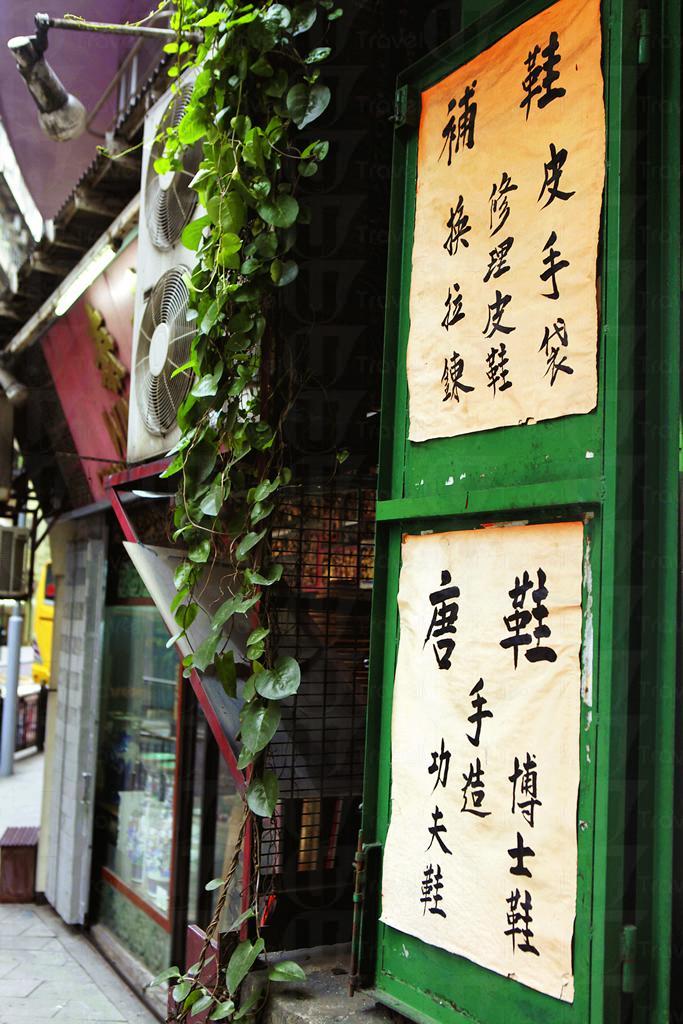 補鞋
換拉鍊
修理皮鞋
皮手袋
唐鞋
手造
功夫鞋
博士鞋